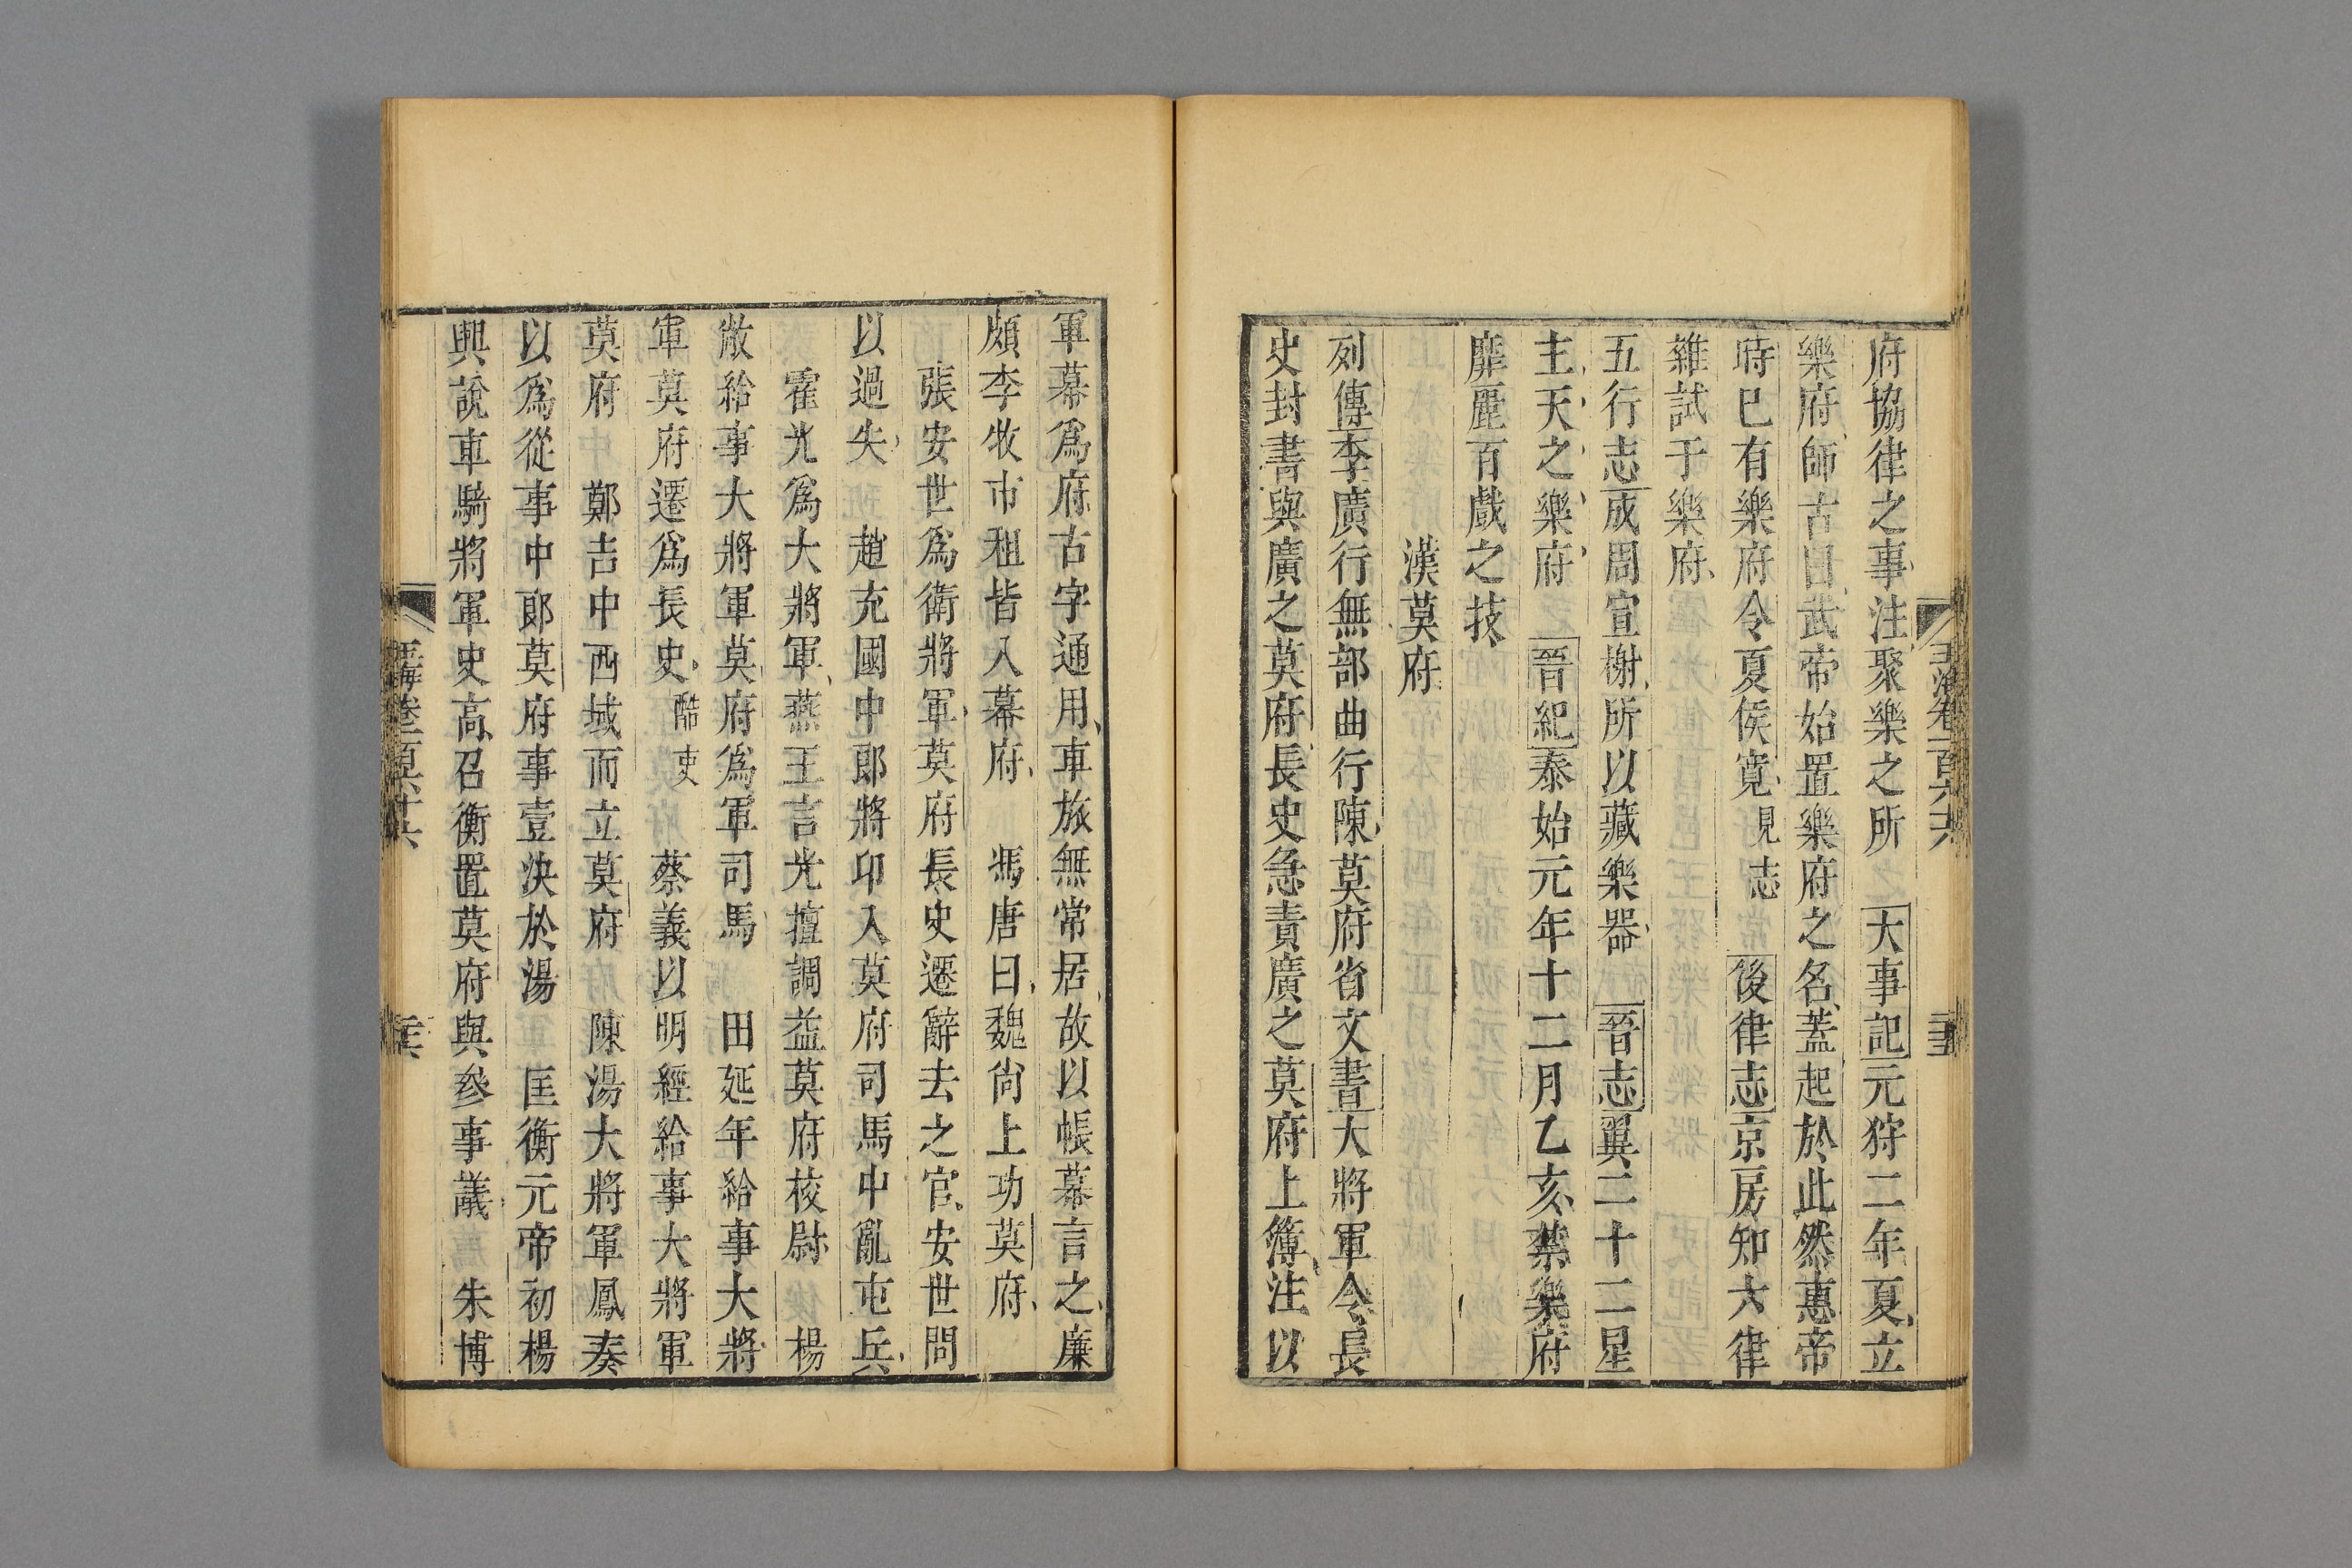 府協律之事注聚樂之所　大事記元狩二年夏立
樂府師古曰武帝始置樂府之名蓋起於此然惠帝
時已有樂府令夏侯寬見志　後律志京房知六律
雜試于樂府
五行志成周宣榭所以藏樂器　晉志翼二十二星
主天之樂府　晉紀泰始元年十二月乙亥禁樂府
靡麗百戲之技
漢莫府
列傳李廣行無部曲行陳莫府省文書大將軍令長
史封書與廣之莫府長史急責廣之莫府上簿注以
軍幕爲府古字通用車旅無常居故以帳幕言之廉
頗李牧市租皆入幕府　馮唐曰魏尙上功莫府
張安世爲衛將軍莫府長史遷辭去之官安世問
以過失　趙充國中郞將卬入莫府司馬中亂屯兵
霍光爲大將軍燕王言光擅調益莫府校尉　楊
敞給事大將軍莫府爲軍司馬　田延年給事大將
軍莫府遷爲長史酷吏　蔡義以明經給事大將軍
莫府　鄭吉中西域而立莫府　陳湯大將軍鳳奏
以爲從事中郞莫府事壹決於湯　匡衡元帝初楊
興說車騎將軍史高召衡置莫府與參事議　朱博
玉海卷一百六十六